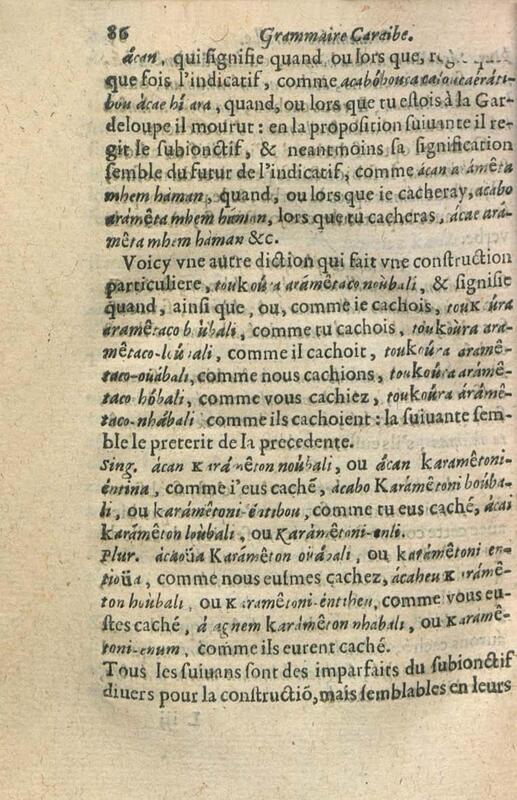 86 Grammaire Caraibe.
ácan, qui signifie quand, ou lors que, regit
que fois l'indicatif, comme
bou ácae hí ara, quand, ou lors que tu estois à la Gar-
deloupe il mourut: en la proposition suiuante il re-
git le subionctif, & neantmoins sa signification
semble du futur de l'indicatif, comme ácan arámêta
mhem háman, quand, ou lors que ie cacheray, acábo
arámêta mhem háman, lors que tu cacheras, ácae ará-
mêta mhem háman &c.
Voicy vne autre diction qui fait vne construction
particuliere, toukoúra arámêtaco noúbali, & signifie
quand, ainsi que, ou, comme ie cachois, toukoúra
aramêtaco boúbali, comme tu cachois, toukoùra ara-
mêtaco-loúbali, comme il cachoit, toukoúra arámê-
taco-ouábali, comme nous cachions, toukoúra arámê-
taco hóbali, comme vous cachiez, toukoúra árámê-
taco-nhábali comme ils cachoient: la suiuante sem-
ble le preterit de la precedente.
Sing. ácan karámêton noúbali, ou ácan karamêtoni-
éntina, comme i'eus caché, ácabo Karámêtoni boúba-
li, ou karámêtoni-éntibou, comme tu eus caché, ácai
karámêton loúbali, ou Karámêtoni-enli.
Plur. ácaoüa Karámêton ouábali, ou karámêtoni en-
tioüa, comme nous eusmes cachez, ácaheu karámê-
ton hoúbali, ou karamêtoni-éntiheu, comme vous eu-
stes caché, á agnem karámêton nhabali, ou karamê-
toni-enum, comme ils eurent caché.
Tous les suiuans sont des imparfaits du subionctif
diuers pour la constructiõ, mais semblables en leurs